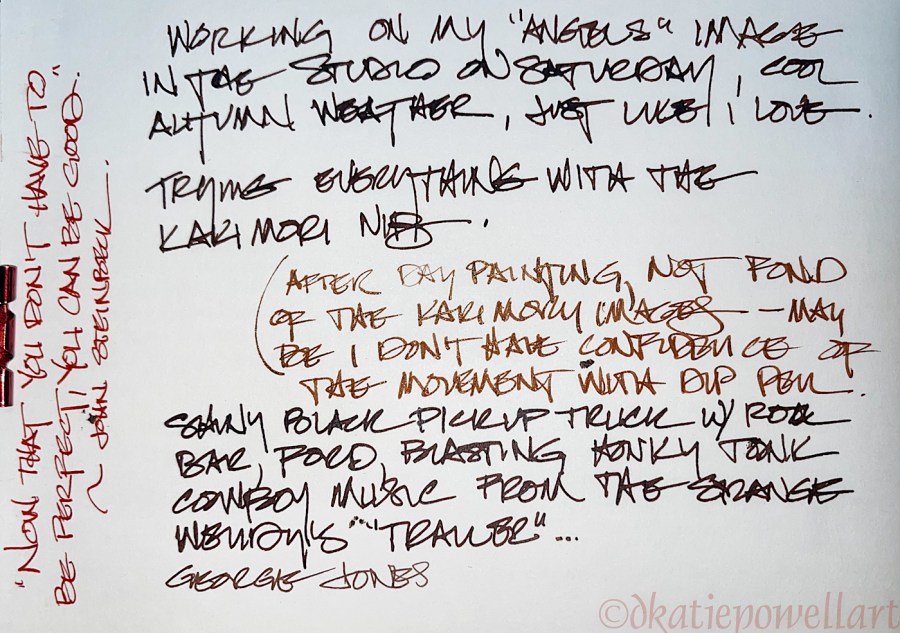 WORKING ON MY "ANGELS" IMAGE
IN THE STUDIO ON SATURDAY, COOL
AUTUMN WEATHER, JUST LIKE I LOVE.
TRYING EVERYTHING WITH THE
KAKIMORI NIB.
(AFTER DAY PAINTING, NOT FOND
OF THE KAKIMORI IMAGES -- MAY
BE I DON'T HAVE CONFIDENCE OF
THE MOVEMENT WITH DIP PEN.
SHINY BLACK PICKUP TRUCK W/ ROLL
BAR, FORD, BLASTING HONKY TONK
COWBOY MUSIC FROM THE STRANGE
WENDY'S "TRAILER"...
GEORGE JONES
"NOW THAT YOU DON'T HAVE TO
BE PERFECT, YOU CAN BE GOOD."
~ JOHN STEINBECK
©dkatiepowellart